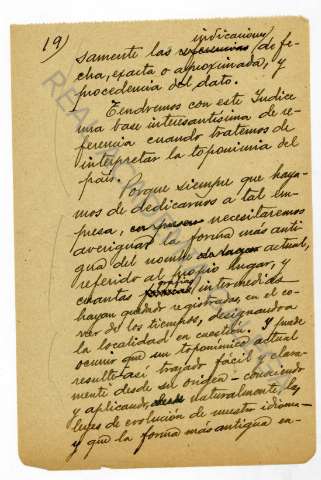 19)
indicaciones
samente las referencias de fe-
cha, exacta o aproximada, y
procedencia del dato.
Tendremos con este Indice
una base interesantísima de re-
ferencia cuando tratemos de
interpretar la toponimia del
país.
Porque siempre que haya-
mos de dedicarnos a tal em-
presa, necesitaremos
averiguar la forma más anti-
gua del nombre actual,
referido al propio lugar, y
cuantas grafías intermedias
hayan quedado registradas en el co-
rrer de los tiempos, designando a
la localidad en cuestión. Y puede
ocurrir que un toponímico actual
resulte así trajado fácil y clara-
mente desde su origen – conociendo
y aplicando, naturalmente, las
leyes de evolución de nuestro idioma –
y que la forma más antigua en-